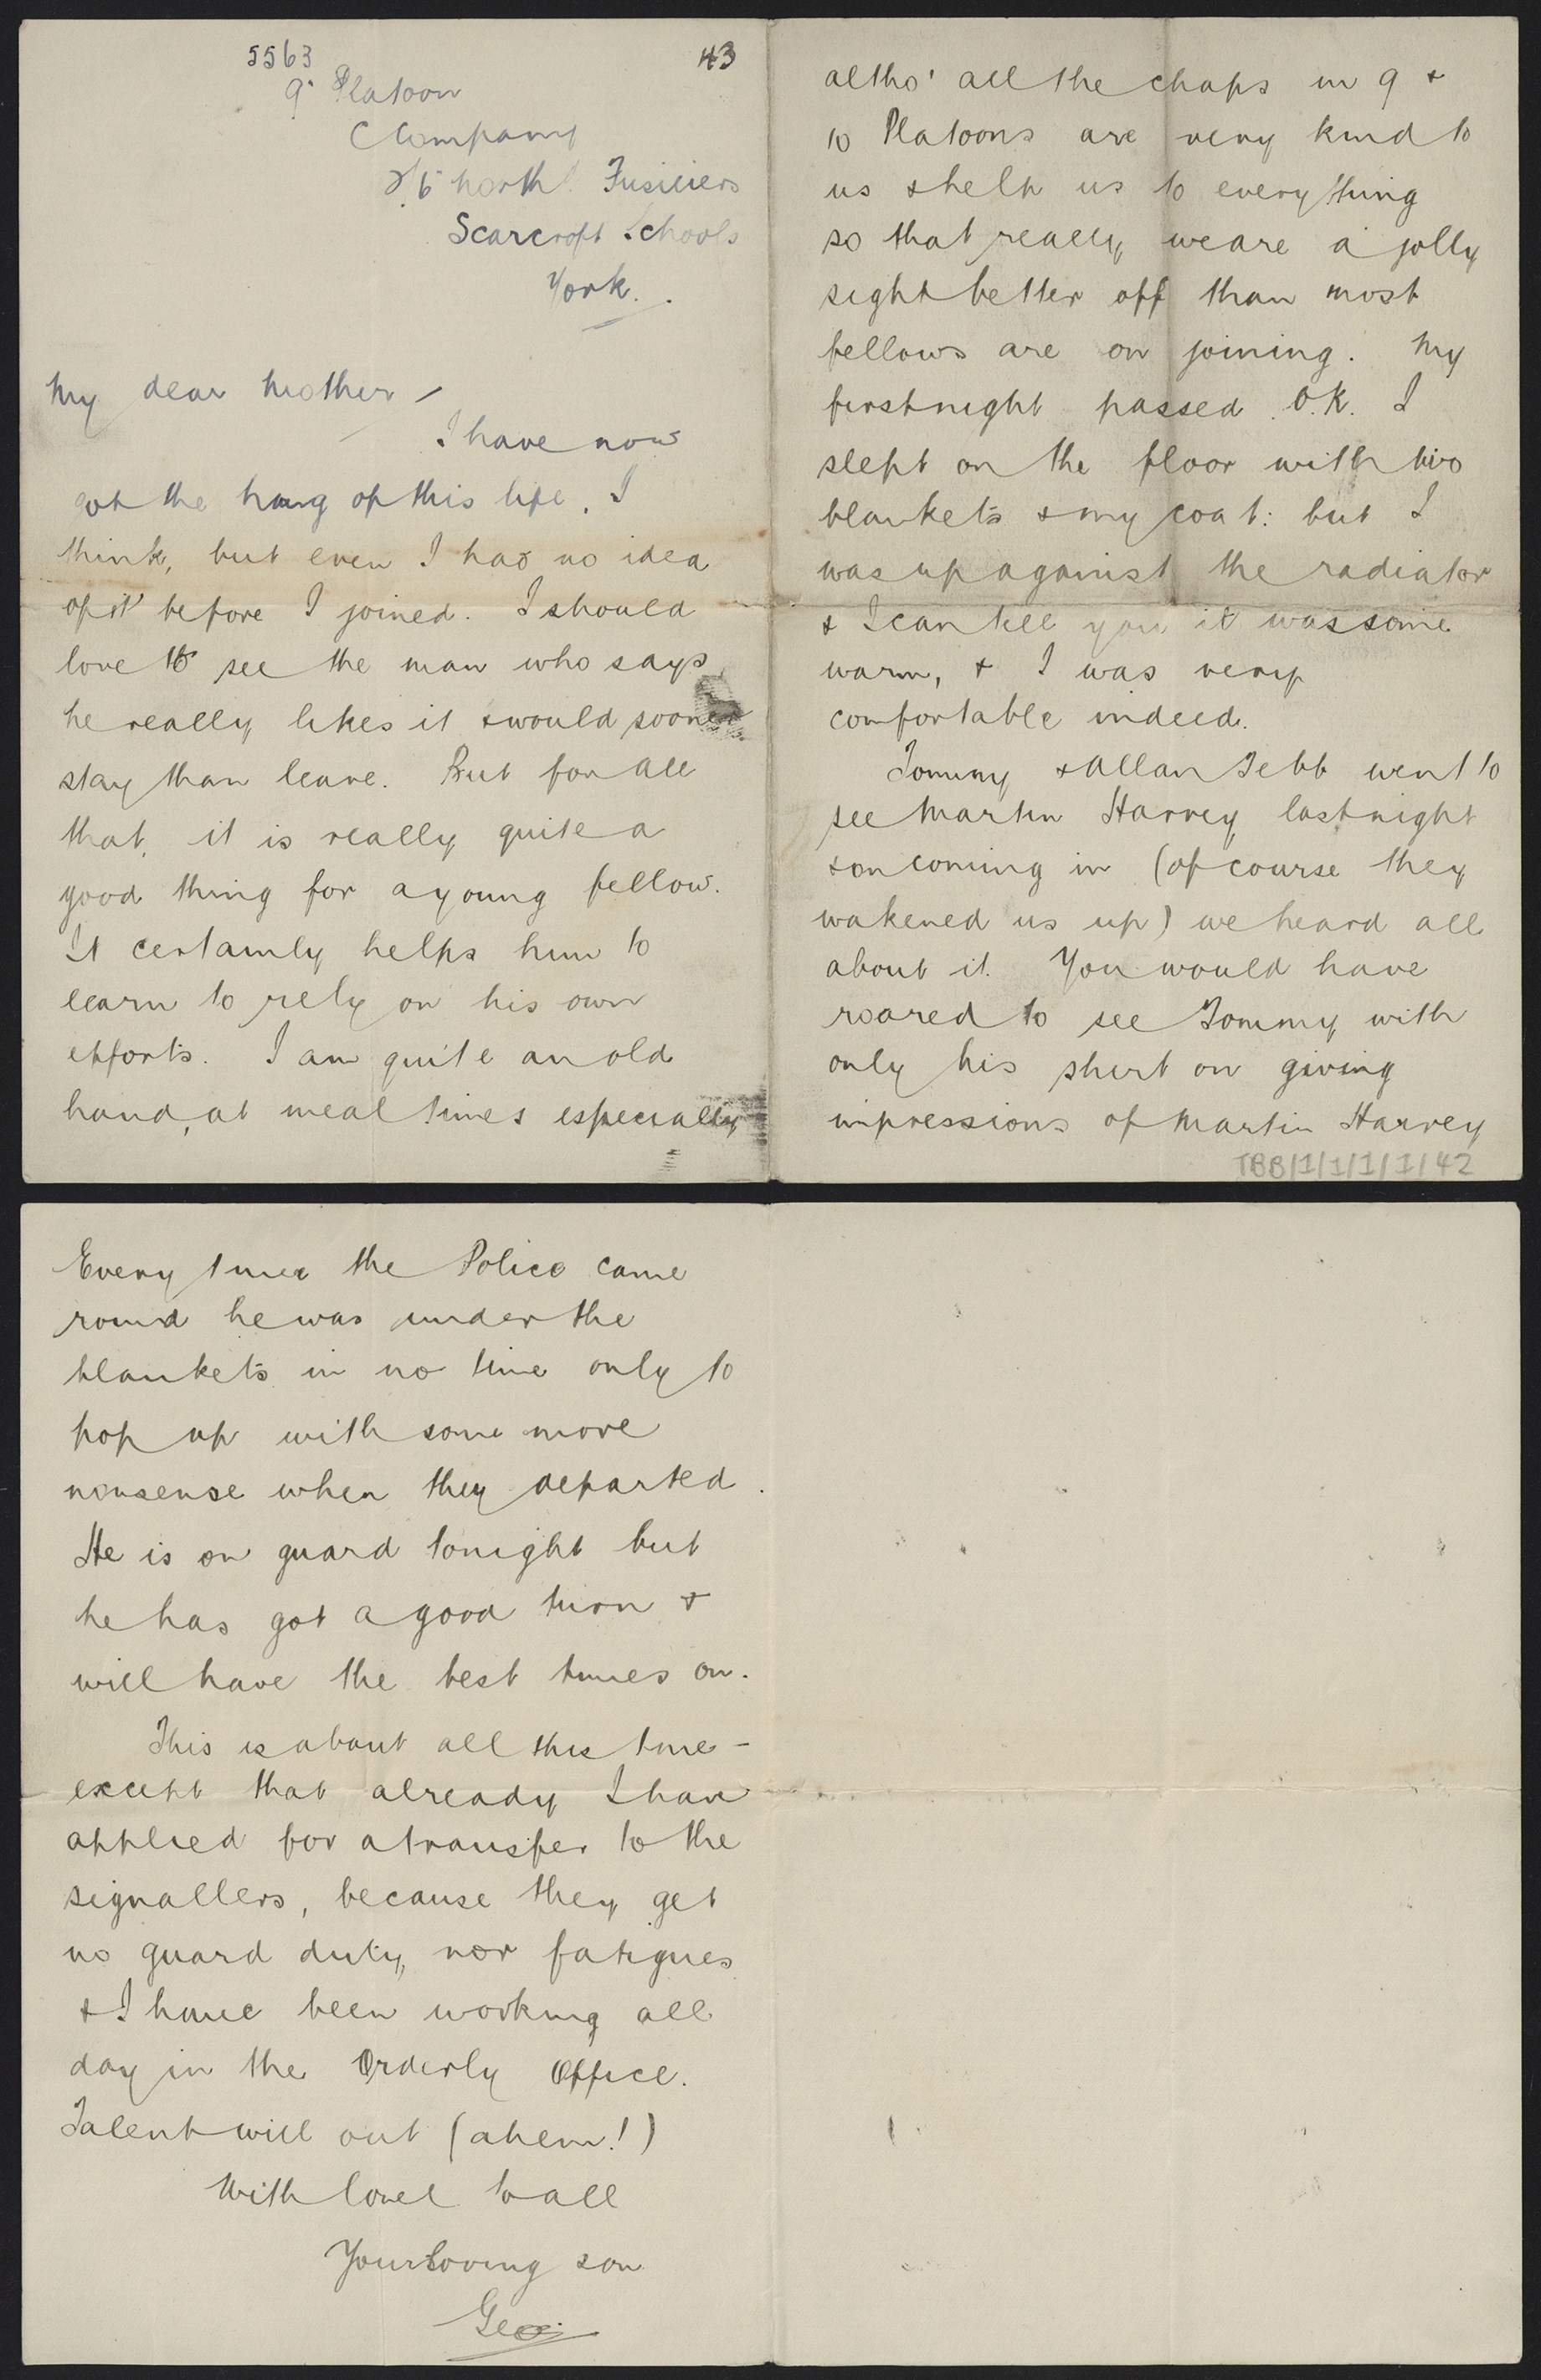 5563
43
9 Platoon
C Company
2/6 North. Fusiliers
Scarcroft Schools
York.
My dear Mother –
I have now
got the hang of this life, I
think, but even I had no idea
of it before I joined. I should
love to see the man who says
he really likes it & would sooner
stay than leave. But for all
that, it is really quite a
good thing for a young fellow.
It certainly helps him to
learn to rely on his own
efforts. I am quite an old
hand, at meal times especially
altho' all the chaps in 9 &
10 Platoons are very kind to
us & help us to everything
so that really, we are a jolly
sight better off than most
fellows are on joining. My
first night passed O.K. I
slept on the floor with two
blankets & my coat: but I
was up against the radiator
& I can tell you it was some
warm, & I was very
comfortable indeed.
Tommy & Allan Tebb went to
see Martin Harvey last night
& on coming in (of course they
wakened us up) we heard all
about it. You would have
roared to see Tommy with
only his shirt on giving
impressions of Martin Harvey
TBB/1/1/1/1/42
Every time the Police came
round he was under the
blankets in no time only to
pop up with some more
nonsense when they departed.
He is on guard tonight but
he has got a good turn &
will have the best times on.
This is about all this time –
except that already I have
applied for a transfer to the
signallers, because they get
no guard duty, nor fatigues
& I have been working all
day in the Orderly Office.
Talent will out (ahem!)
With love to all
Your loving son
Geo.